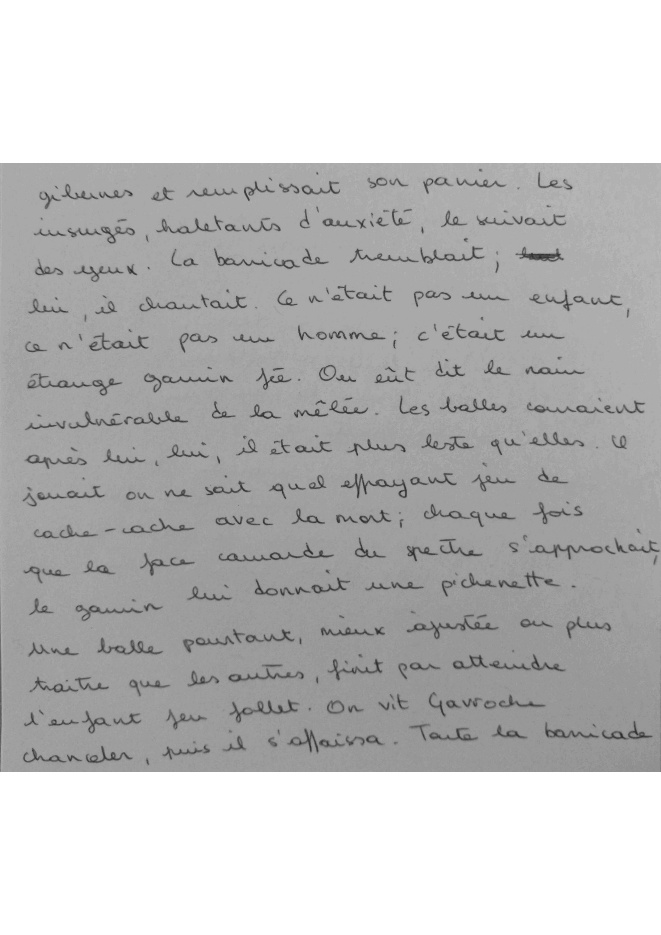 gibernes et remplissait son panier. Les
insurgés, haletants d'anxiété, le suivait
des yeux. La barricade tremblait;
lui, il chantait. Ce n'était pas un enfant,
ce n'était pas un homme; c'était un
étrange gamin fée. On eût dit le nain
invulnérable de la mêlée. Les balles couraient
après lui, lui, il était plus leste qu'elles. Il
jouait on ne sait quel effrayant jeu de
cache-cache avec la mort; chaque fois
que la face camarde du spectre s'approchait,
le gamin lui donnait une pichenette.
Une balle pourtant, mieux ajustée ou plus
traître que les autres, finit par atteindre
l'enfant feu follet. On vit Gavroche
chanceler, puis il s'affaissa. Toute la barricade